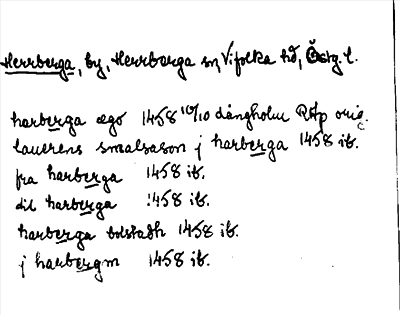 Herrberga, by, Herrberga sn, Vifolka hd, Östg l.
harberga ægo 1458 10/10 dångholm Råp orig.
laurens smalsason j harberga 1458 ib.
fra harberga 1458 ib.
dil harberga 1458 ib.
harberga bolstadh 1458 ib.
j harbergm 1458 ib.